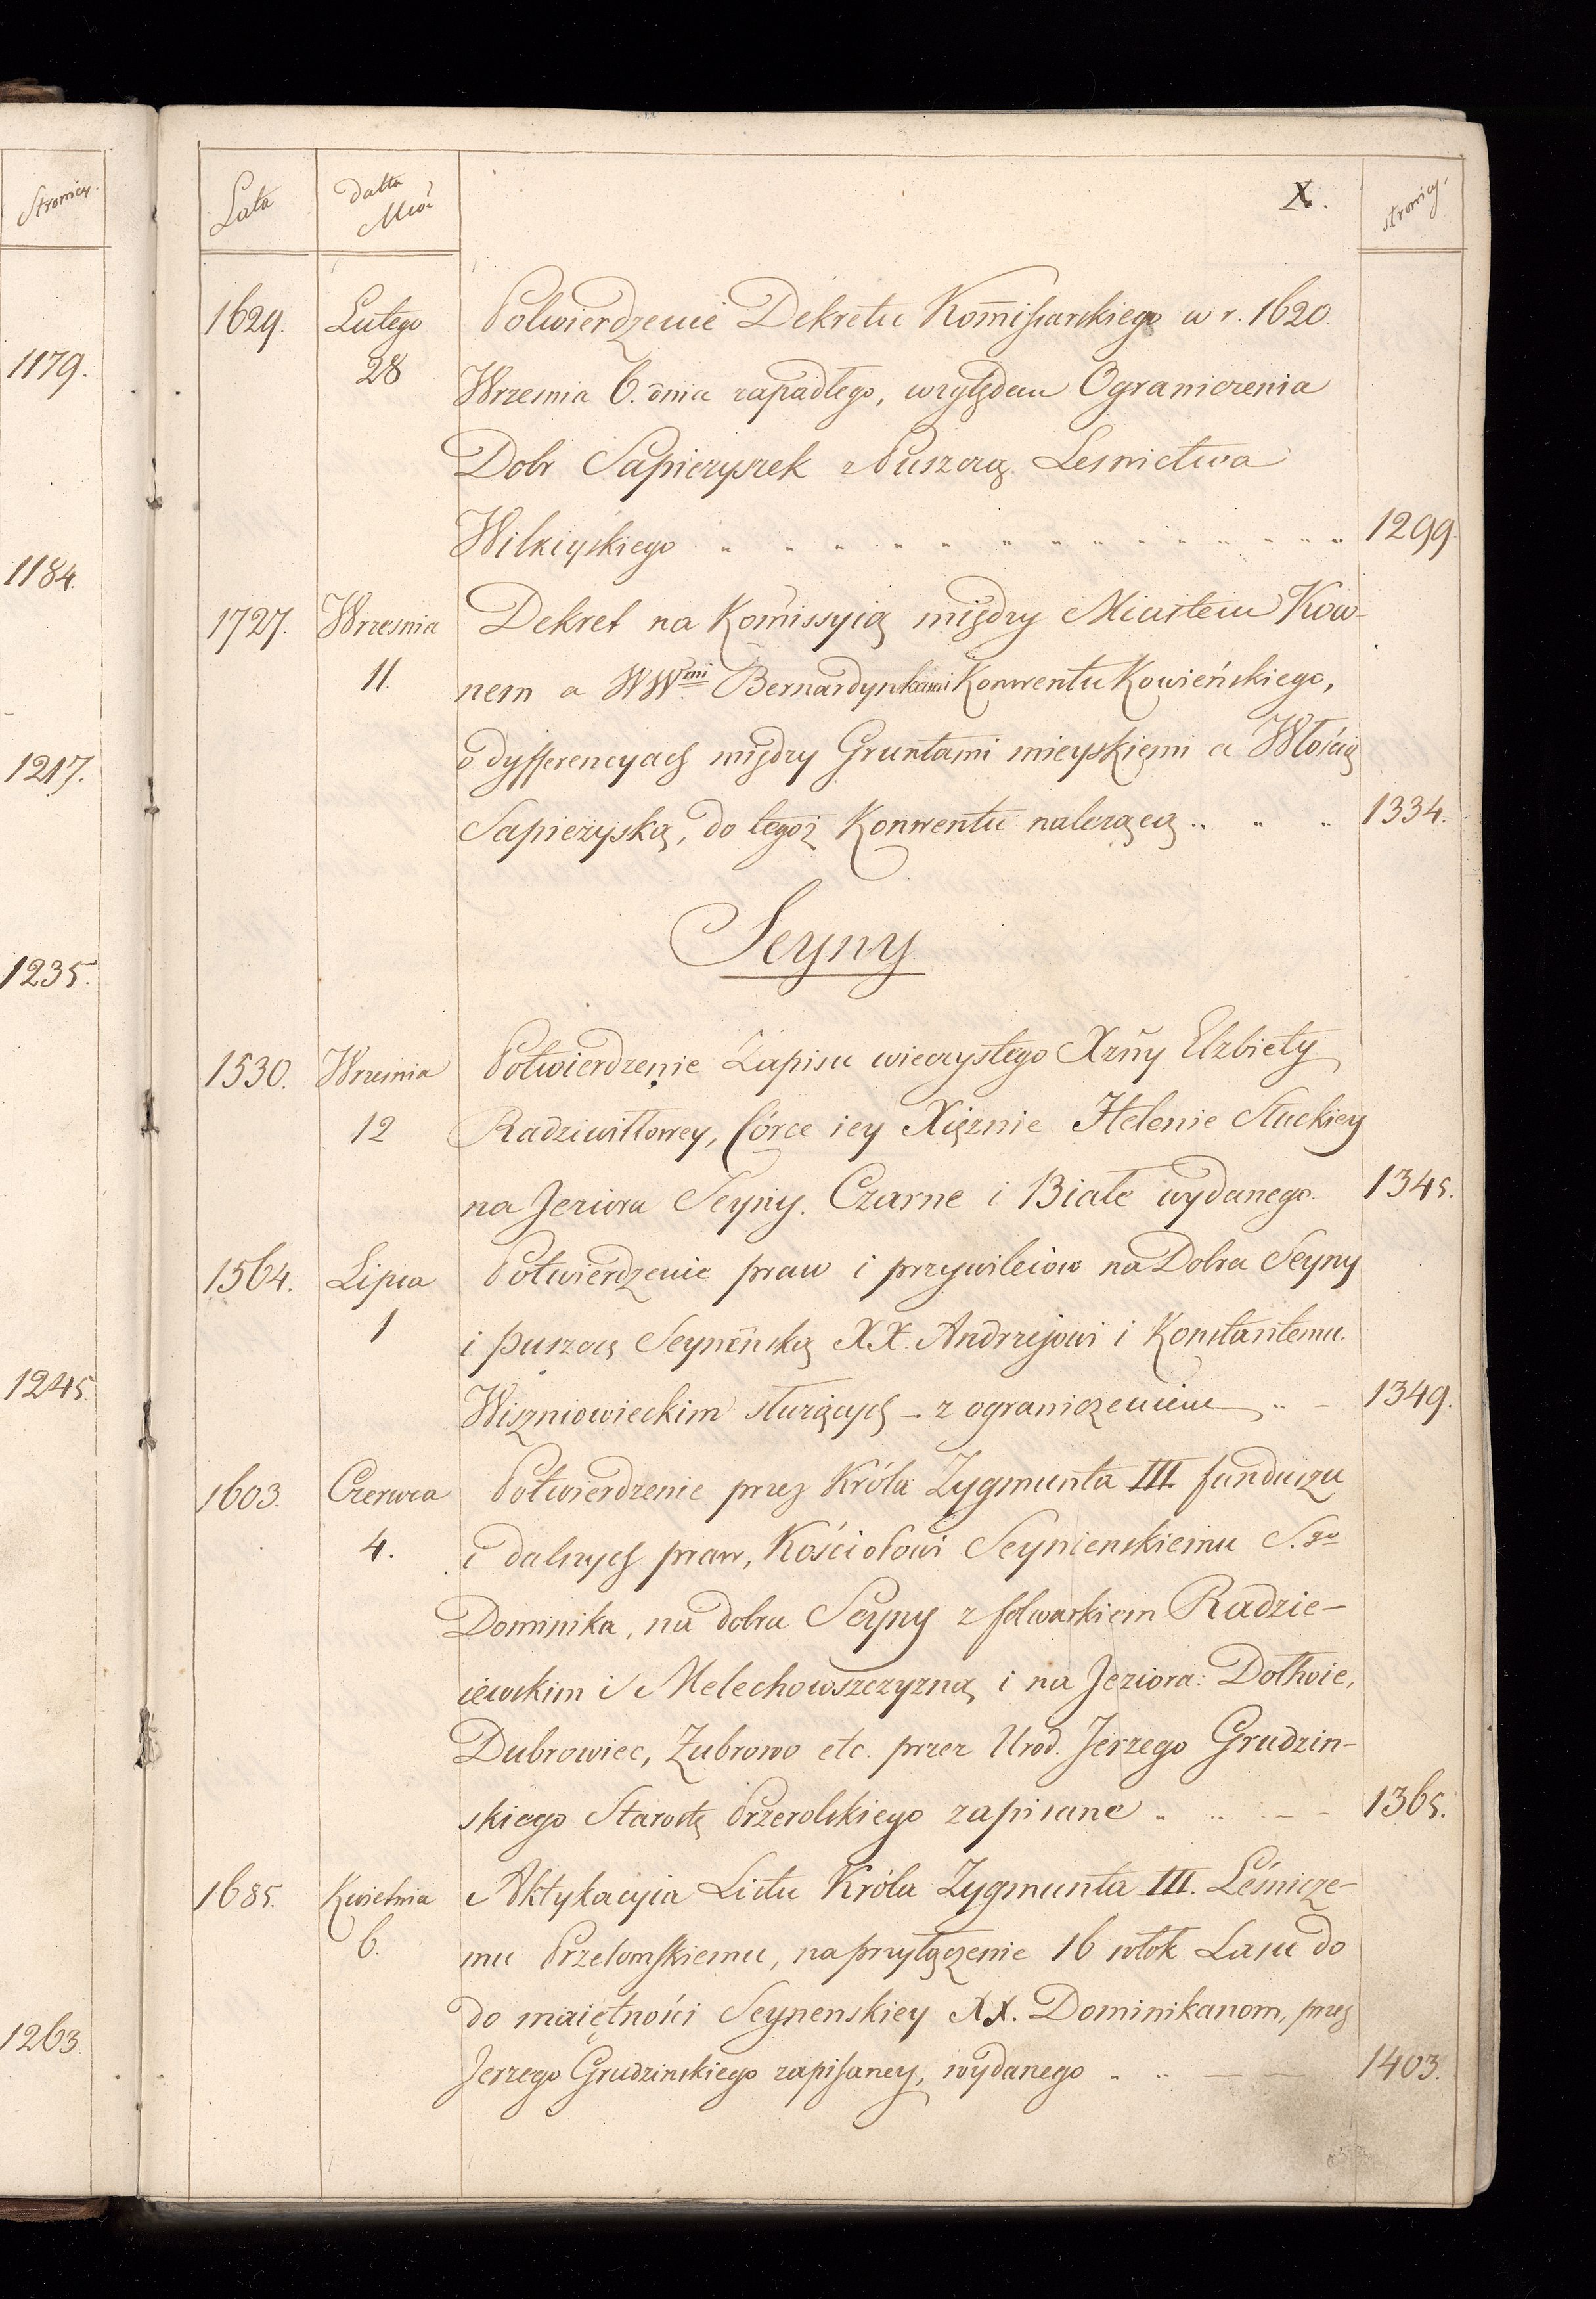 Stronicy.
1179.
1184.
1217.
1235.
1245.
1263.
Lata
Datta
X.
stronicy.
1629. Lutego Potwierdzenie Dekretu Kom̃issarskiego w r. 1620.
28 Wrzesnia 6. dnia zapadłego, względem Ograniczenia
Dobr Sapieżyszek z Puszczą Lesnictwa
Wilkiyskiego 1299.
1727. Wrzesnia Dekret na Kom̃issyią między Miastem Kow-
11. nem a WW mi Bernardynkami Konwentu Kowieńskiego,
o dyfferencyach między Gruntami mieyskiemi a Włością
Sapieżyską, do tegoż Konwentu należącą 1334.
Seyny
1530. Wrzesnia Potwierdzenie Zapisu wieczystego Xzñy Elżbiety
12 Radziwiłłowey, Córce iey Xiężnie Helenie Słuckiey
na Jeziora Seyny. Czarne i Białe wydanego. 1345.
1564. Lipca Potwierdzenie praw i przywileiow na Dobra Seyny
1 i puszczę Seynenską XX. Andrzejowi i Konstantemu.
Wiszniowieckim służących – z ograniczeniem 1349.
1603. Czerwca Potwierdzenie przez Króla Zygmunta III funduszu
4. i dalszych praw, Kościołowi Seynienskiemu S. go
Dominika, na dobra Seyny z folwarkiem Radzie-
iewskim i Melechowszczyzną i na Jeziora: Dołhoie,
Dubrowiec, Zubrowo etc. przez Urod. Jerzego Grudzin-
skiego Starostę Przerolskiego zapisane 1365.
1685. Kwietnia Aktykacyia Listu Króla Zygmunta III. Leśnicze-
6. mu Przelomskiemu, na przyłączenie 16 włok Lasu do
do maiętności Seynenskiey XX. Dominikanom, przez
Jerzego Grudzinskiego zapisaney, wydanego 1403.